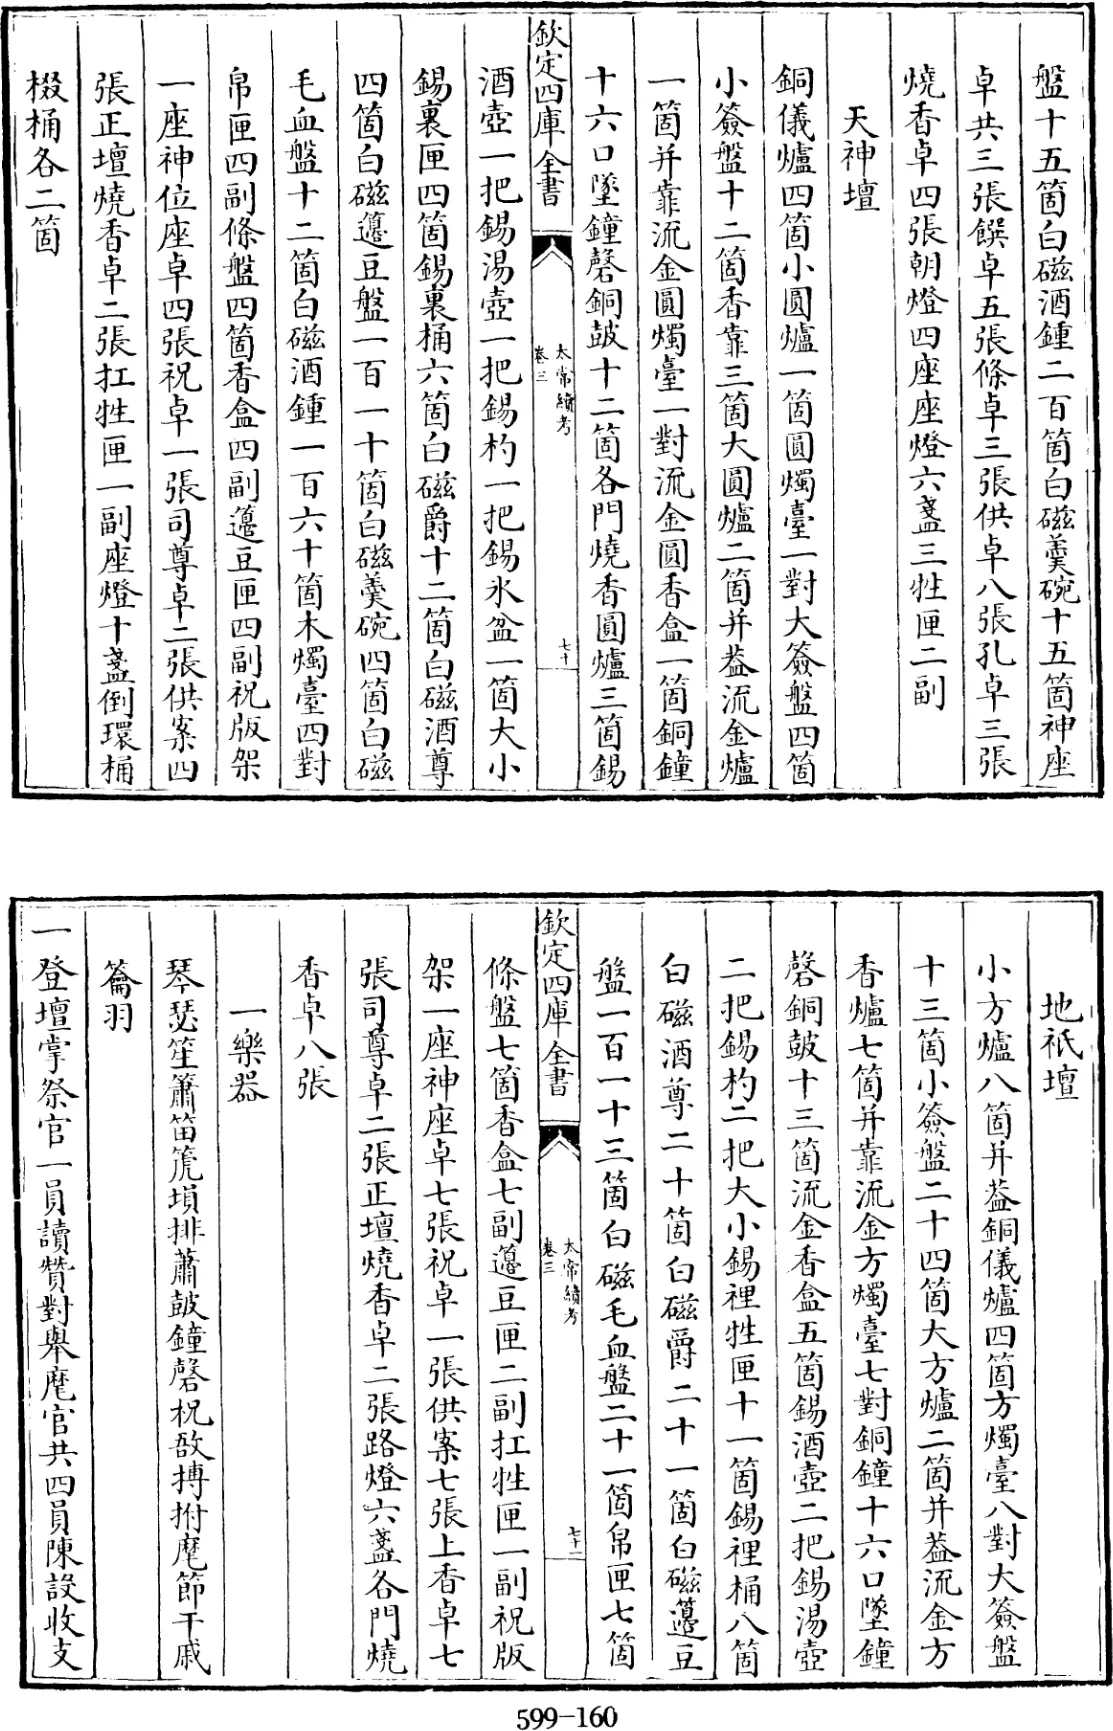 盤十五箇白磁酒鍾二百箇白磁羹碗十五箇神座
卓共三張饌卓五張條卓三張供卓八張孔卓三張
燒香卓四張朝燈四座座燈六盞三牲匣二副
天神壇
銅儀爐四箇小圓爐一箇圓燭臺一對大簽盤四箇
小簽盤十二箇香靠三箇大圓爐二箇并葢流金爐
一箇并靠流金圓燭臺一對流金圓香盒一箇銅鐘
十六口墜鐘磬銅皷十二箇各門燒香圓爐三箇錫
欽定四庫全書
太常續考
卷三
七十
酒壺一把錫湯壺一把錫杓一把錫氷盆一箇大小
錫裏匣四箇錫裏桶六箇白磁爵十二箇白磁酒尊
四箇白磁籩豆盤一百一十箇白磁羹碗四箇白磁
毛血盤十二箇白磁酒鍾一百六十箇木燭臺四對
帛匣四副條盤四箇香盒四副籩豆匣四副祝版架
一座神位座卓四張祝卓一張司尊卓二張供案四
張正壇燒香卓二張扛牲匣一副座燈十盞倒環桶
棳桶各二箇
地祇壇
小方爐八箇并葢銅儀爐四箇方燭臺八對大簽盤
十三箇小簽盤二十四箇大方爐二箇并葢流金方
香爐七箇并靠流金方燭臺七對銅鐘十六口墜鐘
磬銅皷十三箇流金香盒五箇錫酒壺二把錫湯壺
二把錫杓二把大小錫裡牲匣十一箇錫裡桶八箇
白磁酒尊二十箇白磁爵二十一箇白磁籩豆
盤一百一十三箇白磁毛血盤二十一箇帛匣七箇
欽定四庫全書
太常續考
卷三
七十一
條盤七箇香盒七副籩豆匣二副扛牲匣一副祝版
架一座神座卓七張祝卓一張供案七張上香卓七
張司尊卓二張正壇燒香卓二張路燈六盞各門燒
香卓八張
一樂器
琴瑟笙簫笛箎塤排蕭皷鐘磬柷敔搏拊麾節干戚
籥羽
一登壇掌祭官一員讀贊對舉麾官共四員陳設收支
599-160